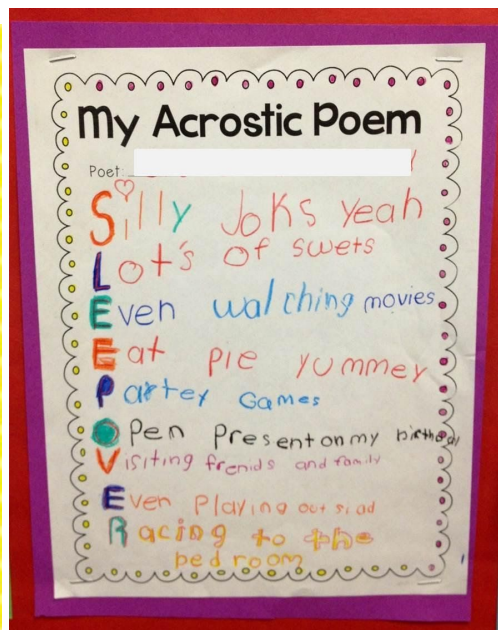 My Acrostic Poem
Poet:
Silly Joks yeah
Lot's of swets
Even walching movies
Eat pie yummey
Partey Games
Open Present on my birthday
Visiting frends and family
Even Playing out siad
Racing to the
bed room